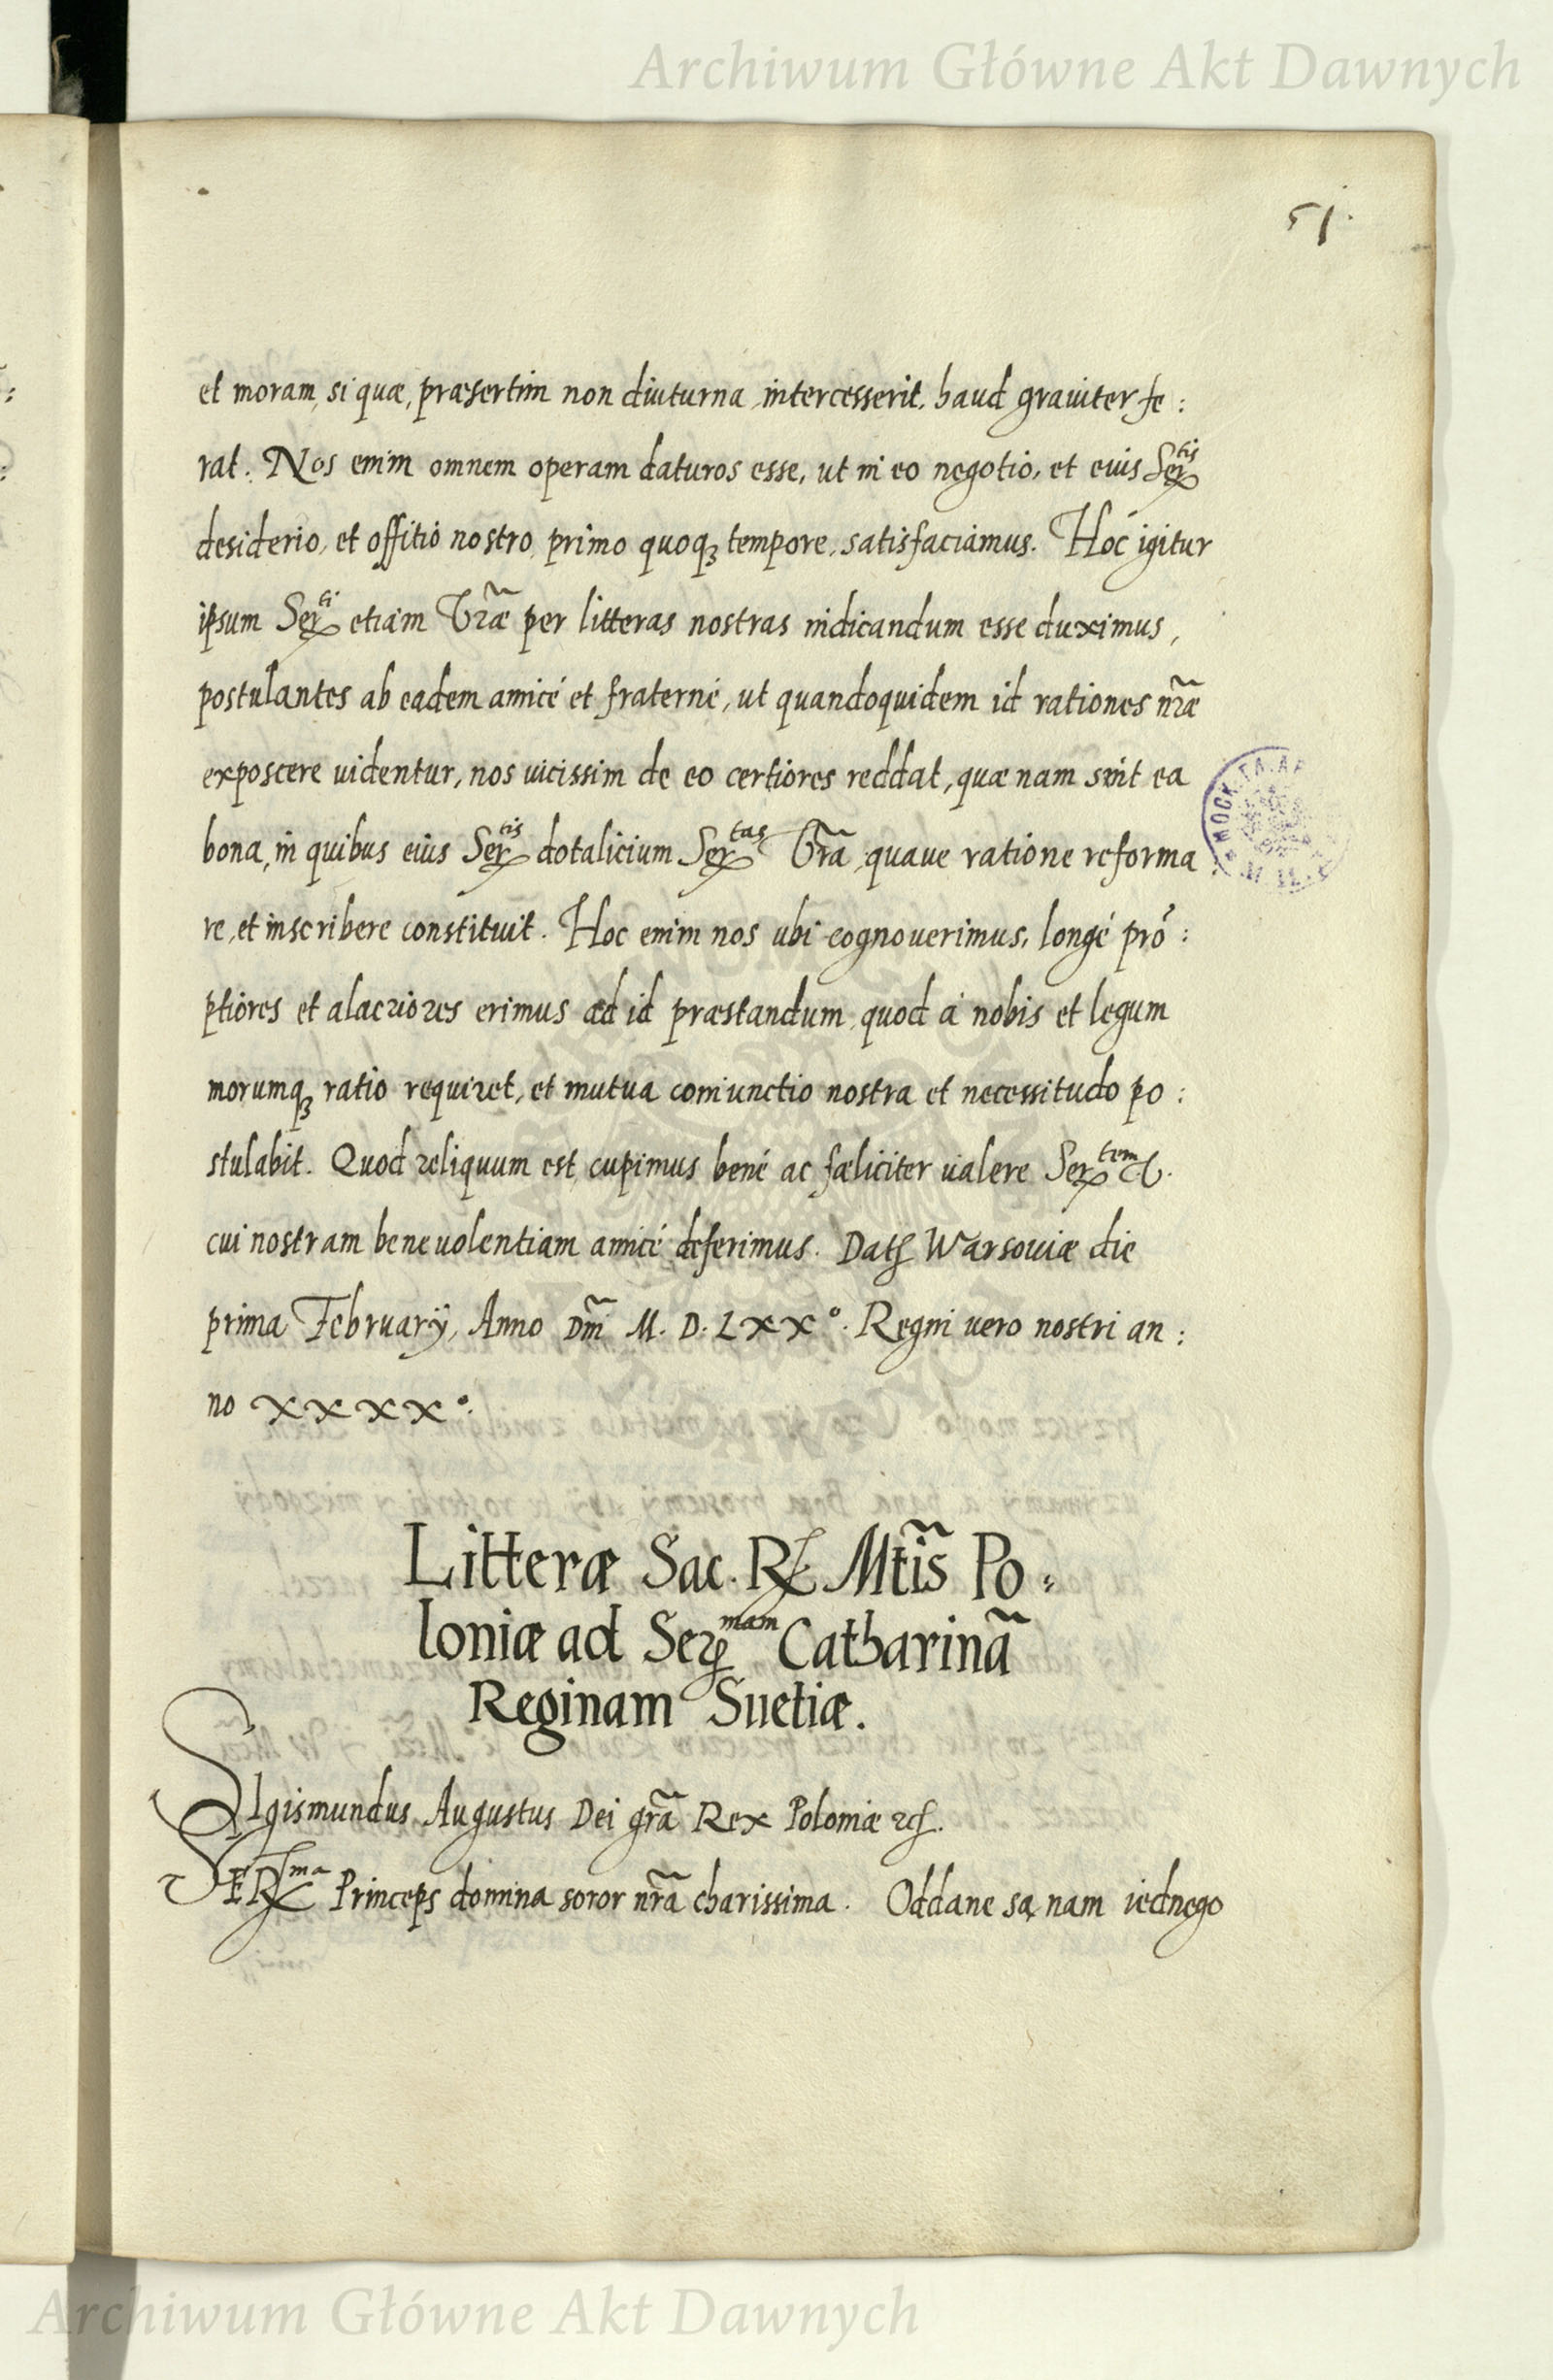 Archiwum Główne Akt Dawnych
51.
et moram, si quæ, præsertim non diuturna intercesserit, haud grauiter fe:
rat. Nos enim omnem operam daturos esse, ut in eo negotio, et eius Serᵗⁱˢ
desiderio, et offitio nostro, primo quoqꝫ tempore, satisfaciamus. Hoc igitur
ipsum Serᵗⁱ etiam Vr̃æ per litteras nostras indicandum esse duximus,
postulantes ab eadem amicé et fraterné, ut quandoquidem id rationes nr̃æ
exposcere uidentur, nos uicissim de eo certiores reddat, quæ nam sint ea
bona, in quibus eius Serᵗⁱˢ dotalicium Serᵗᵃˢ Vr̃a, quaue ratione reforma
re, et inscribere constituit. Hoc enim nos ubi cognouerimus, longé prõ:
ptiores et alacriores erimus ad id præstandum, quod á nobis et legum
morumqꝫ ratio requiret, et mutua coniunctio nostra et necessitudo po:
stulabit. Quod reliquum est, cupimus bené ac fæliciter ualere Serᵗᵉᵐ V.
cui nostram beneuolentiam amicé deferimus. Datꝭ Warsouiæ die
prima Februarÿ, Anno Dñi M. D. LXX°. Regni uero nostri an:
no XXXX°.
Litteræ Sac. Rꝭ Mtĩs Po:
loniæ ad Serᵐᵃᵐ Catharinã
Reginam Suetiæ.
SIgismundus Augustus Dei gr̃a Rex Poloniæ ꝛcꝭ.
SERᵐᵃ Princeps domina soror nr̃a charissima. Oddane są nam iednego
Archiwum Główne Akt Dawnych